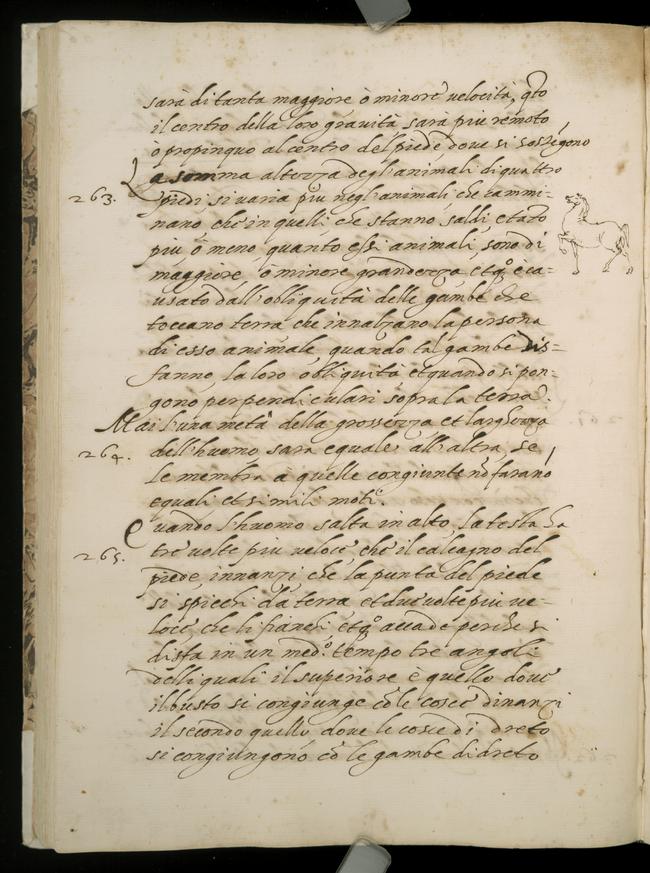 sarà di tanta maggiore ò minore velocità, q̃to
il centro della loro gravità sarà piu remoto
ò propinquo al centro del piede dove si sostẽgono
La somma altezza degli animali di quattro
263. piedi si varia piu negl'animali che cammi-
nano che in quelli che stanno saldi, e tãto
piu ò meno, quanto essi animali, sono di
maggiore, ò minore grandezza et q.º è ca-
usato dall'obliquità delle gambe che
toccano terra che innalzano la persona
di esso animale, quando tal gambe dis-
fanno la loro obliquità et quando si pon-
gono perpendiculari sopra la terra.
Mai l'una metà della grossezza et larghezza
264. dell'huomo sara equale all'altra, se
le membra a quelle congiunte nõ farano
equali et simili moti.
Quando l'huomo salta in alto, la testa ha
265. tre volte piu veloce che il calcagno del
piede, innanzi che la punta del piede
si spicchi da terra, et due volte piu ve-
loce che li fianchi et q.º accade perche si
disfa in un med.º tempo tre angoli
delli quali il superiore è quello dove
il busto si congiunge cõ le coscie dinanzi
il secondo quello dove le coscie di dreto
si congiungono cõ le gambe di dreto